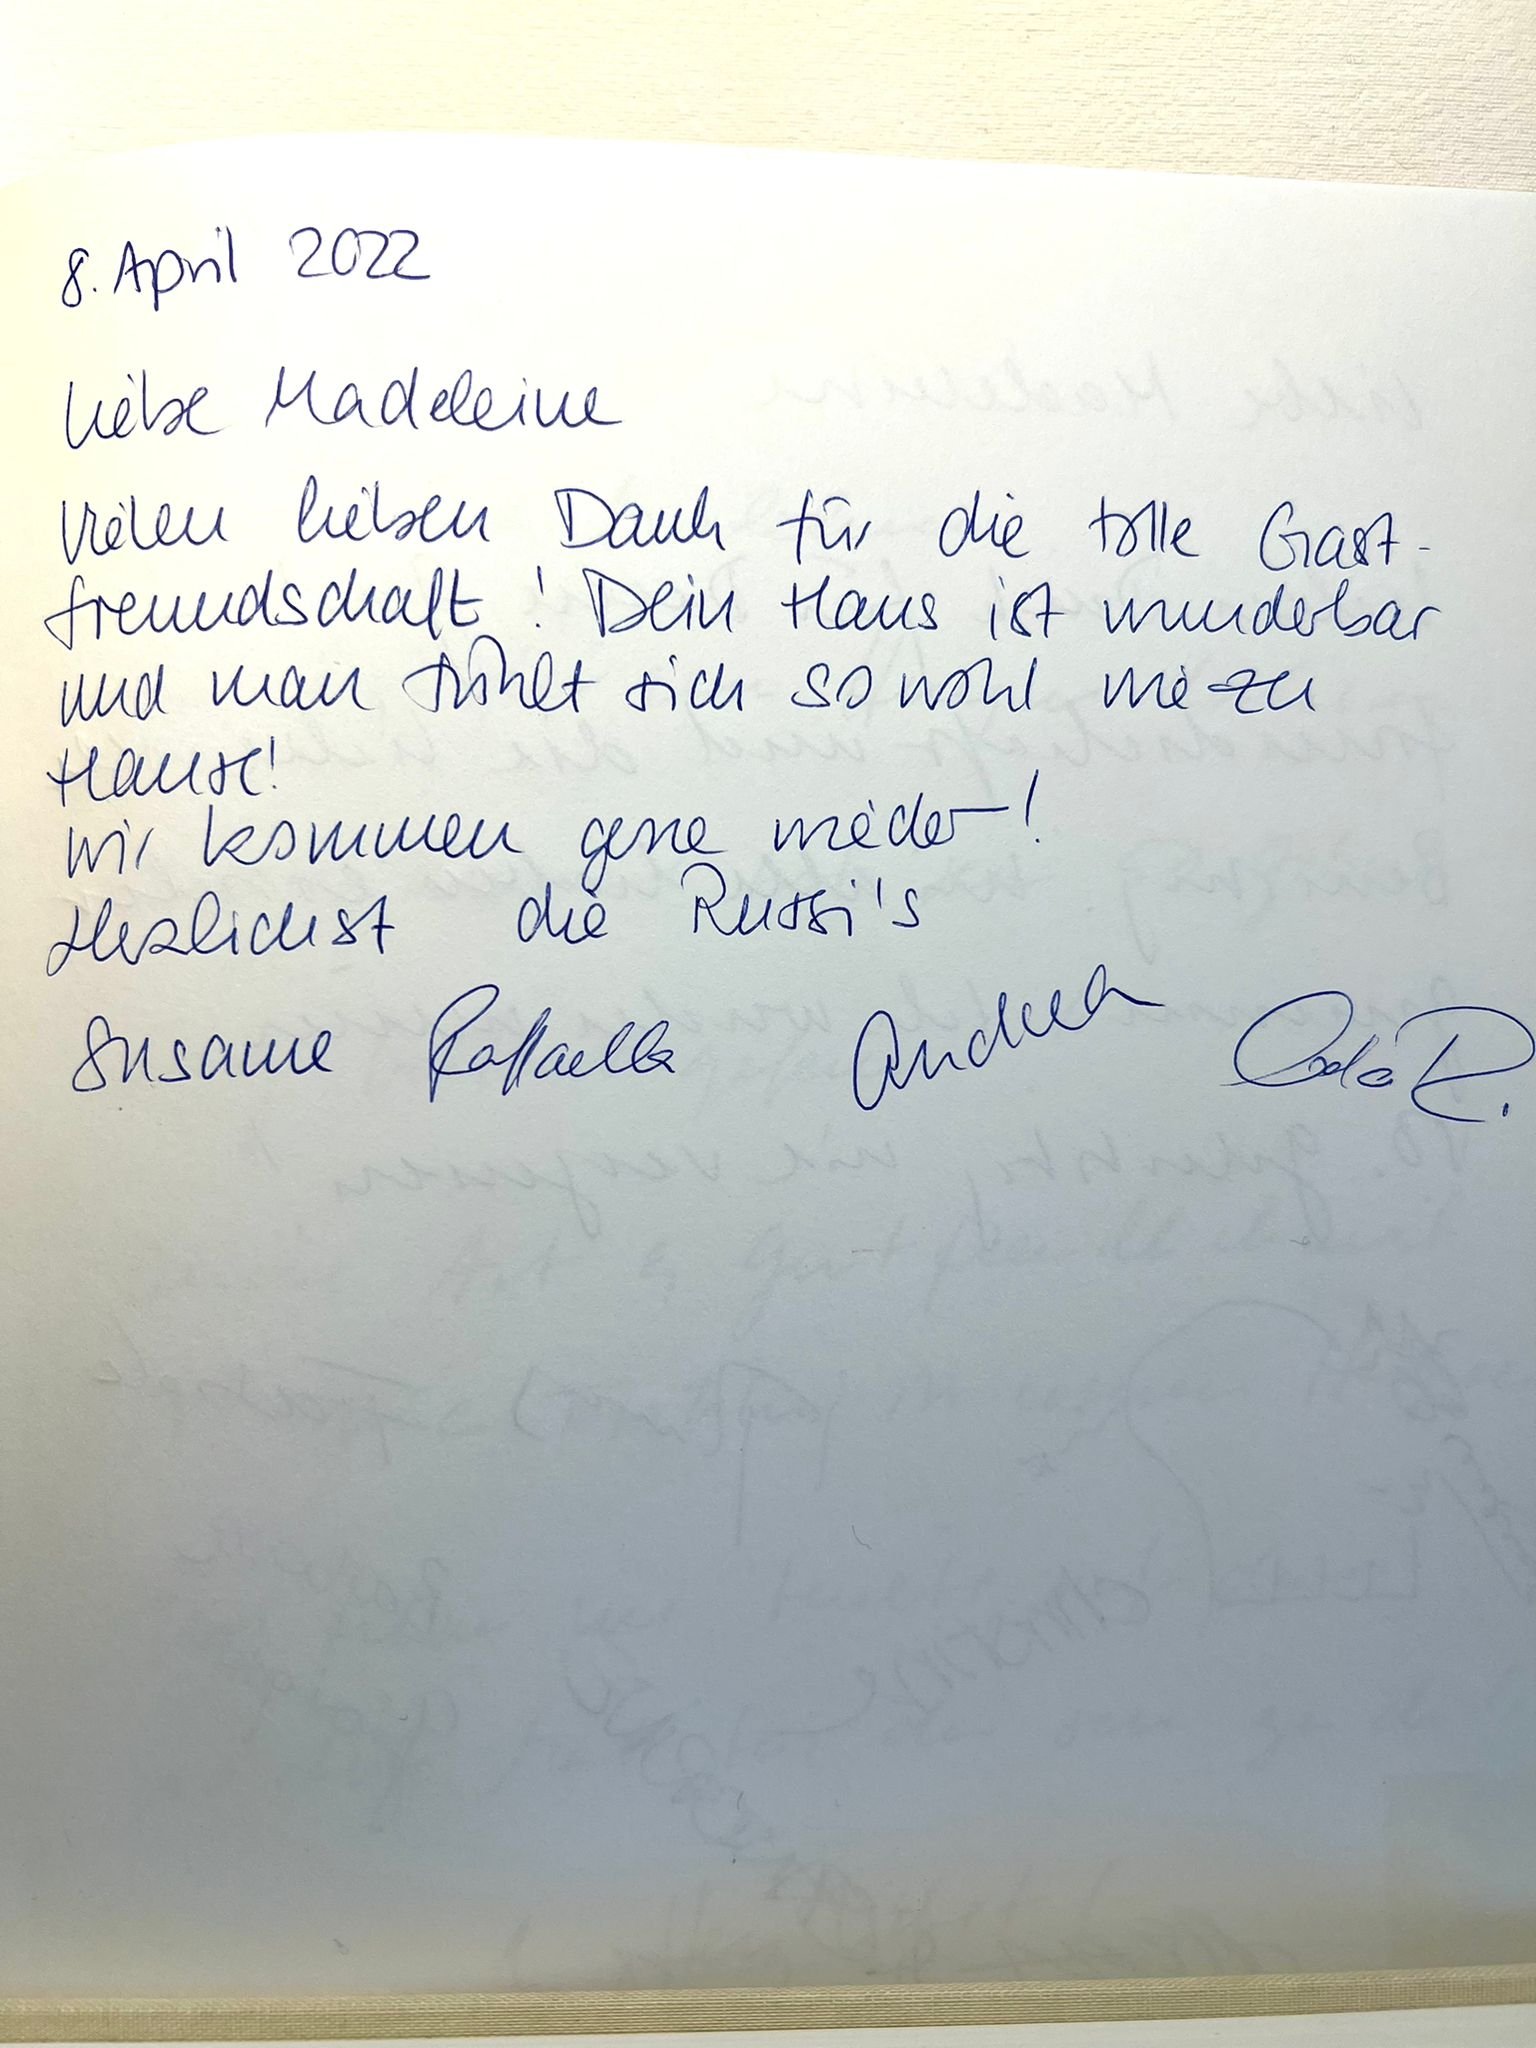 8. April 2022
Liebe Madeleine
Vielen lieben Dank für die tolle Gast-
freundschaft! Dein Haus ist wunderbar
und man fühlt sich so wohl wie zu
Hause!
Wir kommen gerne wieder!
Herzlichst die Russi's
Susanne Raffaella Andrea